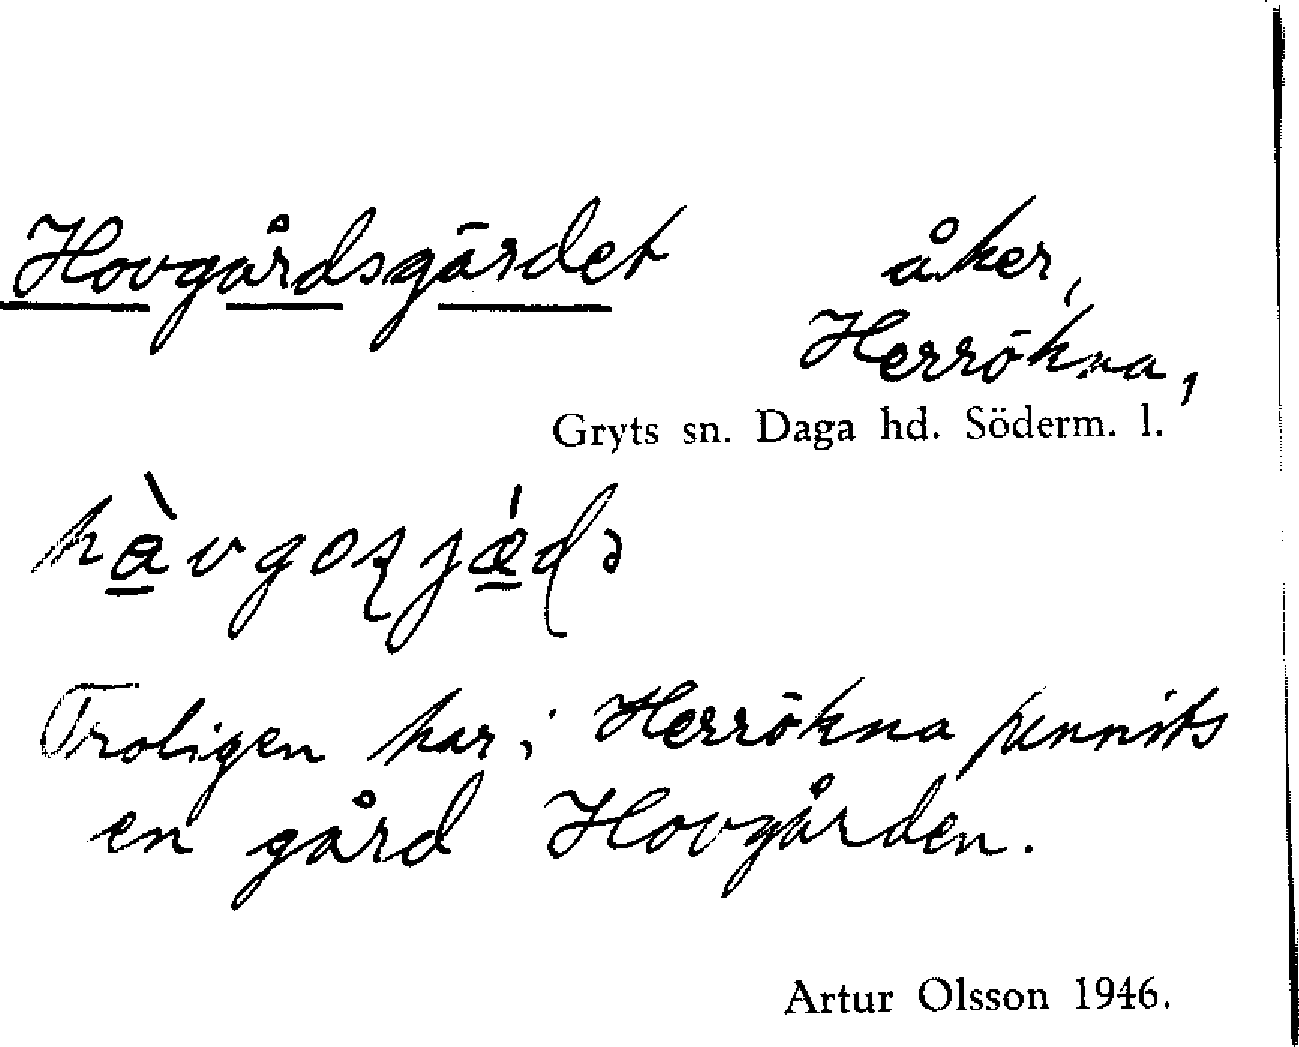 Hovgårdsgärdet åker,
Herrökna,
Gryts sn. Daga hd. Söderm. l.
Troligen har i Herrökna funnits
en gård Hovgården.
Artur Olsson 1946.